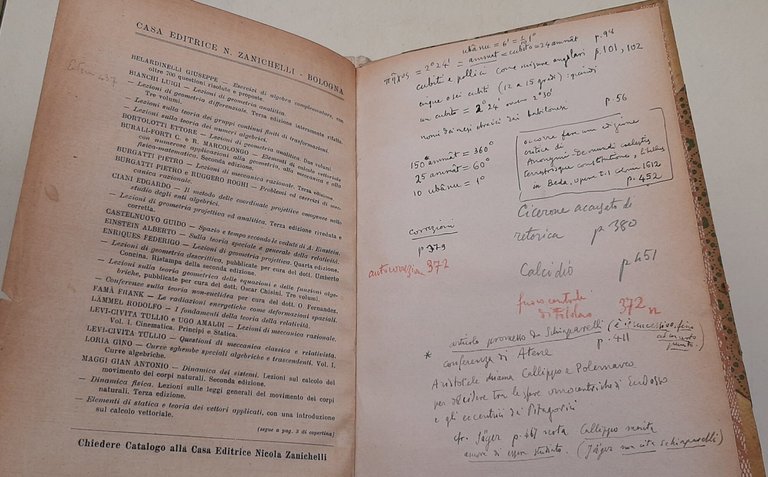 CASA EDITRICE N. ZANICHELLI - BOLOGNA
BELARDINELLI GIUSEPPE — Esercizi di algebra complementare, con
oltre 700 questioni risolute e proposte.
BIANCHI LUIGI — Lezioni di geometria analitica.
— Lezioni di geometria differenziale. Terza edizione interamente rifatta.
Tre volumi.
— Lezioni sulla teoria dei gruppi continui finiti di trasformazioni.
— Lezioni sulla teoria dei numeri algebrici.
BORTOLOTTI ETTORE — Lezioni di geometria analitica. Due volumi.
BURALI-FORTI C. e R. MARCOLONGO — Elementi di calcolo vettoriale
con numerose applicazioni alla geometria, alla meccanica e alla
fisica-matematica. Seconda edizione.
BURGATTI PIETRO — Lezioni di meccanica razionale. Terza edizione.
BURGATTI PIETRO e RUGGERO ROGHI — Problemi ed esercizi di mec-
canica razionale.
CIANI EDGARDO — Il metodo delle coordinate proiettive omogenee nello
studio degli enti algebrici.
— Lezioni di geometria proiettiva ed analitica. Terza edizione riveduta e
corretta.
CASTELNUOVO GUIDO — Spazio e tempo secondo le vedute di A. Einstein.
EINSTEIN ALBERTO — Sulla teoria speciale e generale della relatività.
ENRIQUES FEDERIGO — Lezioni di geometria proiettiva. Quarta edizione.
— Lezioni di geometria descrittiva, pubblicate per cura del dott. Umberto
Concina. Ristampa della seconda edizione.
— Lezioni sulla teoria geometrica delle equazioni e delle funzioni alge-
briche, pubblicate per cura del dott. Oscar Chisini. Tre volumi.
— Conferenze sulla teoria non-euclidea per cura del dott. O. Fernandez.
FAMÀ FRANK — Le radiazioni energetiche come deformazioni spaziali.
LÄMMEL RODOLFO — I fondamenti della teoria della relatività.
LEVI-CIVITA TULLIO e UGO AMALDI — Lezioni di meccanica razionale.
Vol. I. Cinematica. Principi e Statica.
LEVI-CIVITA TULLIO — Questioni di meccanica classica e relativista.
LORIA GINO — Curve sghembe speciali algebriche e trascendenti. Vol. I.
Curve algebriche.
MAGGI GIAN ANTONIO — Dinamica dei sistemi. Lezioni sul calcolo del
movimento dei corpi naturali. Seconda edizione.
— Dinamica fisica. Lezioni sulle leggi generali del movimento dei corpi
naturali. Terza edizione.
— Elementi di statica e teoria dei vettori applicati, con una introduzione
sul calcolo vettoriale.
(segue a pag. 3 di copertina)
Chiedere Catalogo alla Casa Editrice Nicola Zanichelli
ubânu = 6' =
πῆχυς = 2°24' = ammat = cubito = 24 ammât p. 98
cubiti e pollici come misure angolari p. 101, 102
cinque o sei cubiti (12 a 15 gradi): quindi
un cubito = 2°24 ovvero 2°30'
nomi dei mesi ebraici dai babilonesi p. 56
150 ammât = 360°
25 ammât = 60°
10 ubânu = 1°
occorre fare un edizione
critica di
Anonymi De mundi caelestis
terrestrisque constitutione,
in Beda, opera t. 1 1612
p. 452
correzioni
p. 373
autocorrezione 372
Cicerone accusato di
retorica p. 380
Calcidio p. 451
fuoco centrale
di Filolao 372 n
* articolo promesso da Schiaparelli (è il successivo,
p. 411
conferenza di Atene
Aristotele chiama Callippo e Polemarco
per decidere tra le sfere omocentriche di Eudosso
e gli eccentrici dei Pitagorici
cfr. Jäger p. 467 nota. Callippo merita
ancora di essere studiato. (Jäger non cita Schiaparelli)